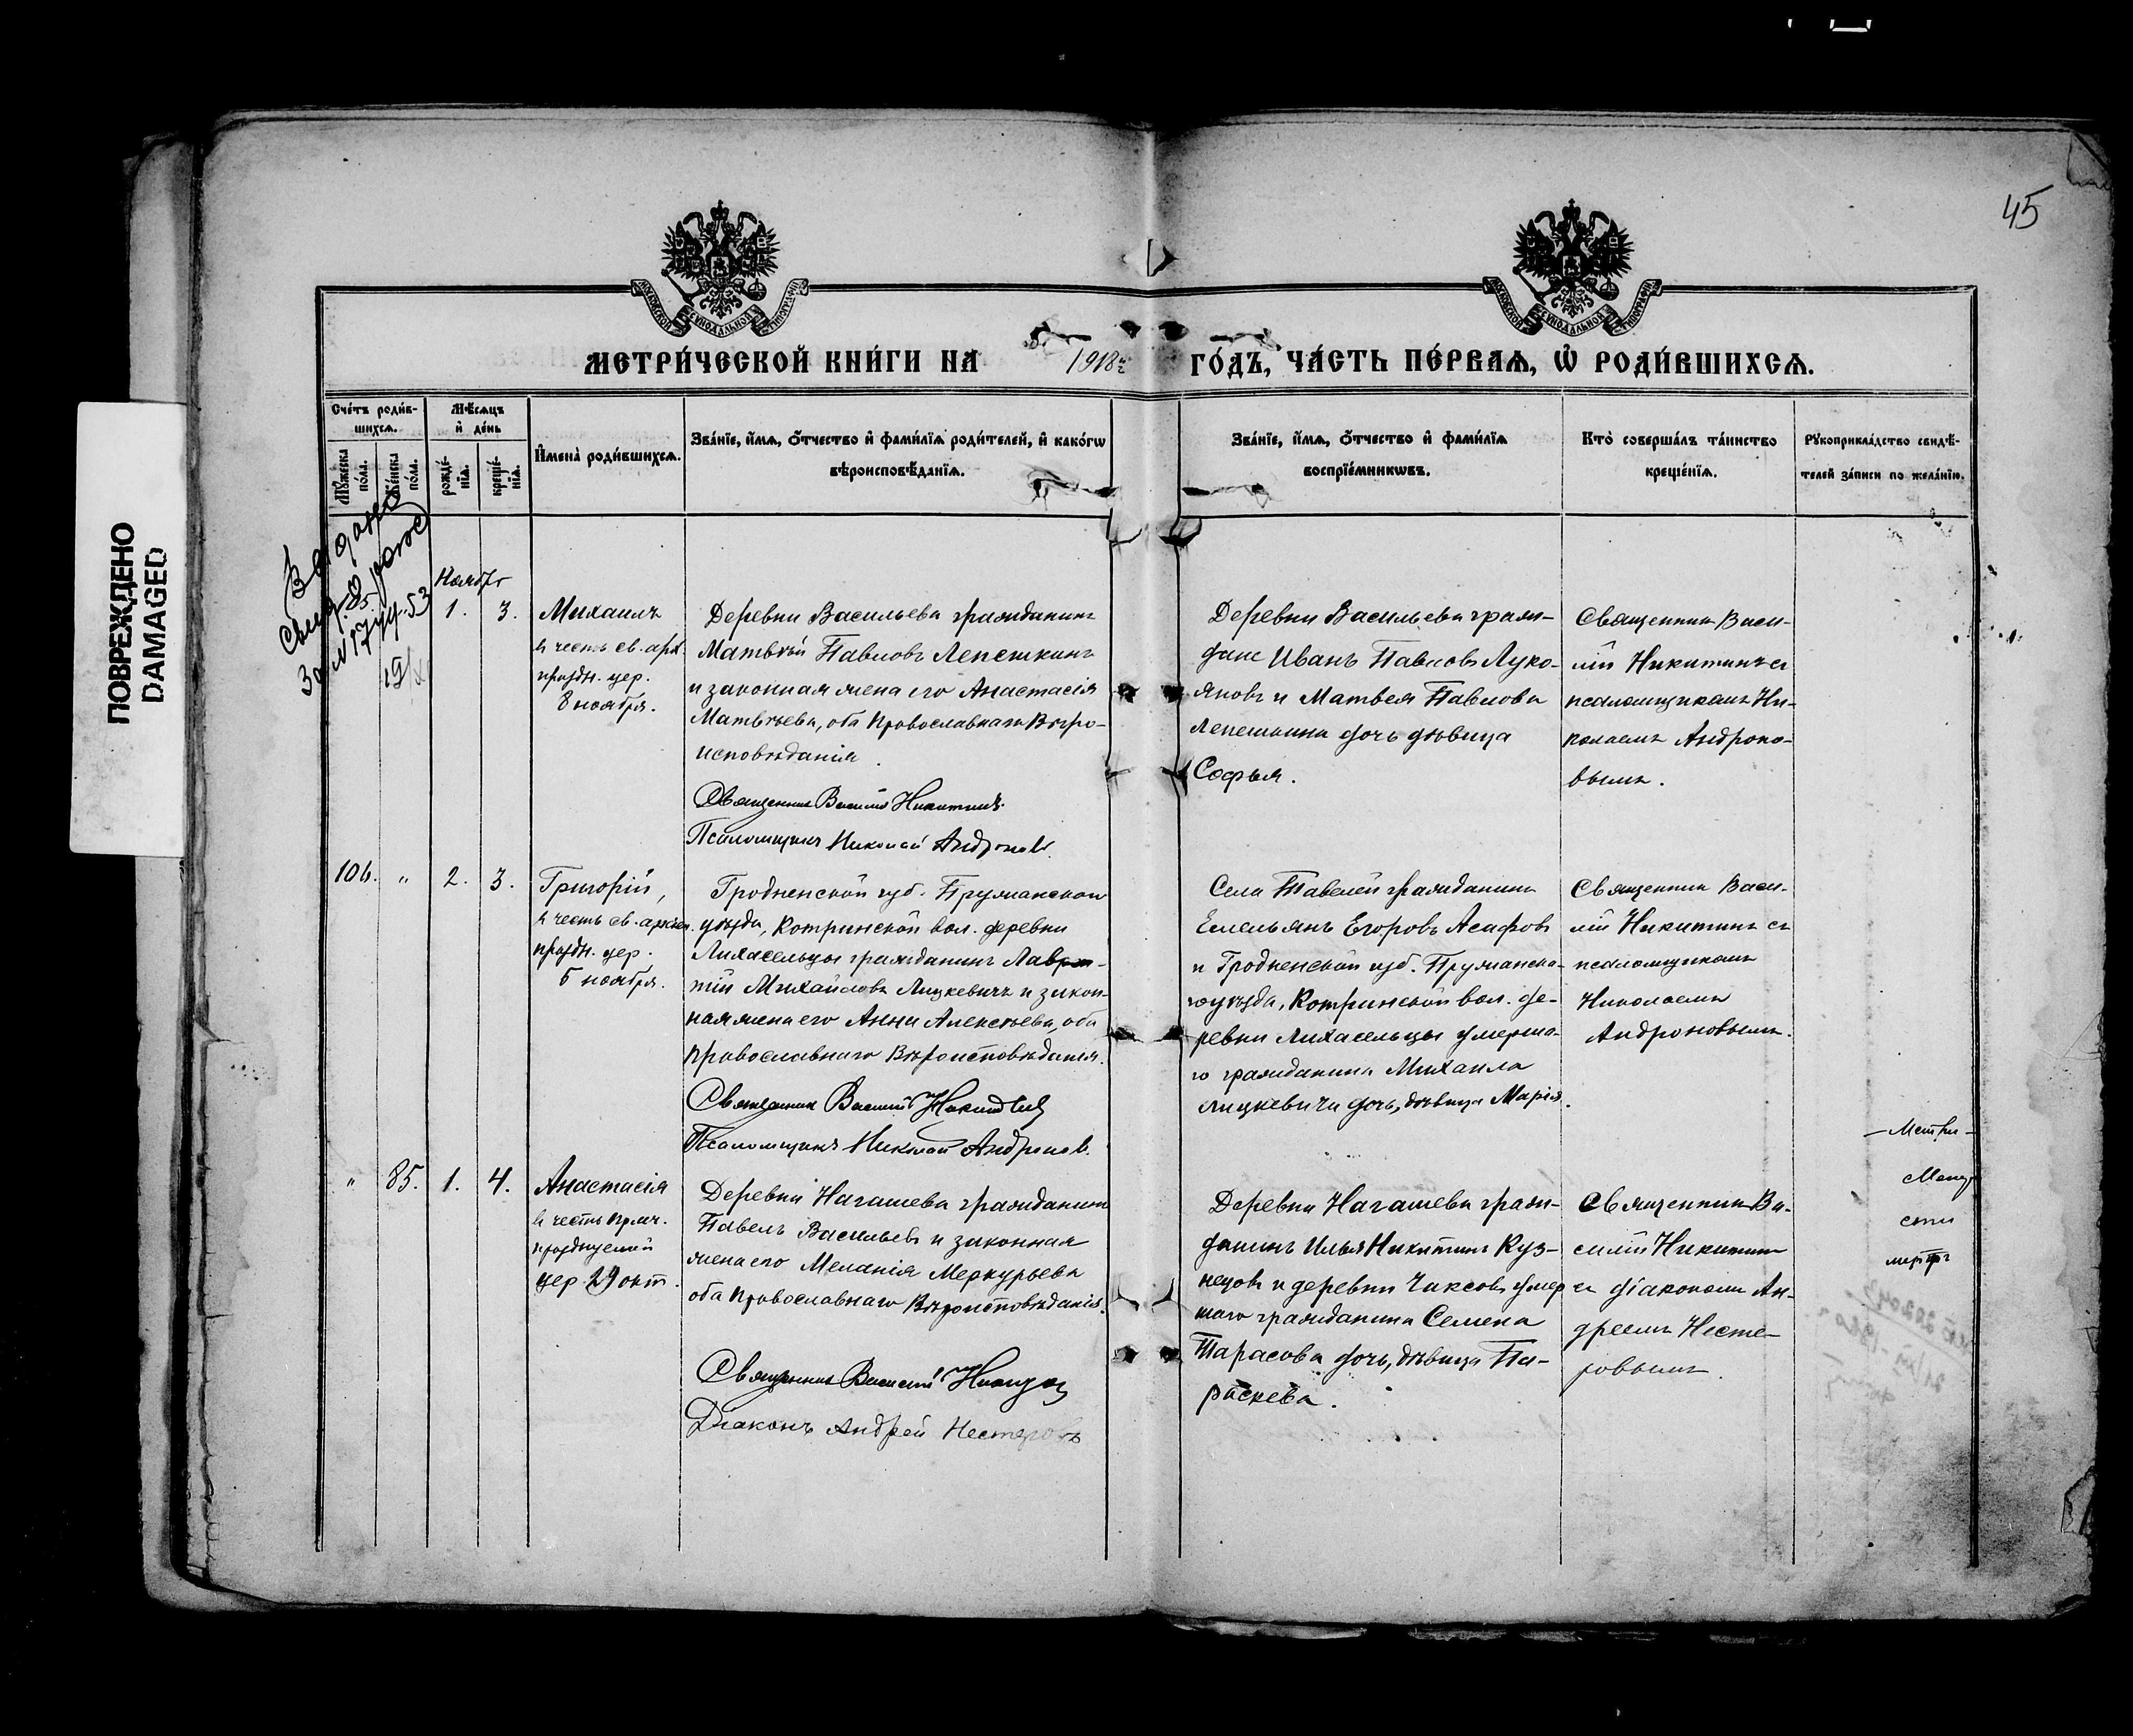 45
МЕТРИ́ЧЕСКОЙ КНИ́ГИ НА 1918 г. ГО́ДЪ, ЧА́СТЬ ПЕ́РВАѦ, Ѡ РОДИ́ВШИХСѦ.
Сче́тъ роди́в-
шихсѧ.
Мꙋ́жеска по́ла.
Же́нска по́ла.
Мѣ́сѧцъ и де́нь
рожде́-
нїѧ.
креще́-
нїѧ.
Имена̀ роди́вшихсѧ.
Зва́нїе, и́мѧ, о́тчество и фами́лїѧ роди́телей, и како́гѡ
вѣроисповѣ́данїѧ.
Зва́нїе, и́мѧ, о́тчество и фами́лїѧ
воспрїе́мникѡвъ.
Кто̀ соверша́лъ та́инство
креще́нїѧ.
Рꙋкоприкла́дство свидѣ́-
телей за́писи по жела́нїю.
ПОВРЕЖДЕНО
DAMAGED
Выдано
Ноябрь
1. 3.
Михаилъ
въ честь св. арх.
праздн. цер.
8 ноября.
Деревни Васильева гражданинъ
Матвѣй Павловъ Лепешкинъ
и законная жена его Анастасія
Матвѣева, оба православнаго Вѣро-
исповѣданія.
Священникъ Василій Никитинъ.
Псаломщикъ Николай Андроновъ.
Деревни Васильева граж-
дане Иванъ Павловъ Луко-
яновъ и Матвея Павлова
Лепешкина дочь дѣвица
Софья.
Священникъ Васи-
лій Никитинъ съ
псаломщикомъ Ни-
колаемъ Андроно-
вымъ.
106. " 2. 3.
Григорій,
въ честь св. архіеп.
праздн. цер.
5 ноября.
Гродненской губ. Пружанскаго
уѣзда, Котринской вол. деревни
Лихасельцы гражданинъ Лаврен-
тій Михайловъ Лицкевичъ и закон-
ная жена его Анна Алексѣева, оба
православнаго Вѣроисповѣданія.
Священникъ Василій Никитинъ
Псаломщикъ Николай Андроновъ.
Села Тавелей гражданинъ
Емельянъ Егоровъ Асафовъ
и Гродненской губ. Пружанска-
го уѣзда, Котринской вол. де-
ревни Лихасельцы умерша-
го гражданина Михаила
Лицкевича дочь, дѣвица Марія.
Священникъ Васи-
лій Никитинъ съ
псаломщикомъ
Николаемъ
Андроновымъ.
" 85. 1. 4.
Анастасія
въ честь прмч.
празднуемой
цер. 29 окт.
Деревни Нагашева гражданинъ
Павелъ Васильевъ и законная
жена его Меланія Меркурьева
оба православнаго Вѣроисповѣданія.
Священникъ Василій Никитинъ
Діаконъ Андрей Нестеровъ
Деревни Нагашева граж-
данинъ Илья Никитинъ Куз-
нецовъ и деревни Чаксовъ умер
шаго гражданина Семена
Тарасова дочь, дѣвица Па-
раскева.
Священникъ Ва-
силій Никитинъ
съ діакономъ Ан-
дреемъ Несте-
ровымъ.